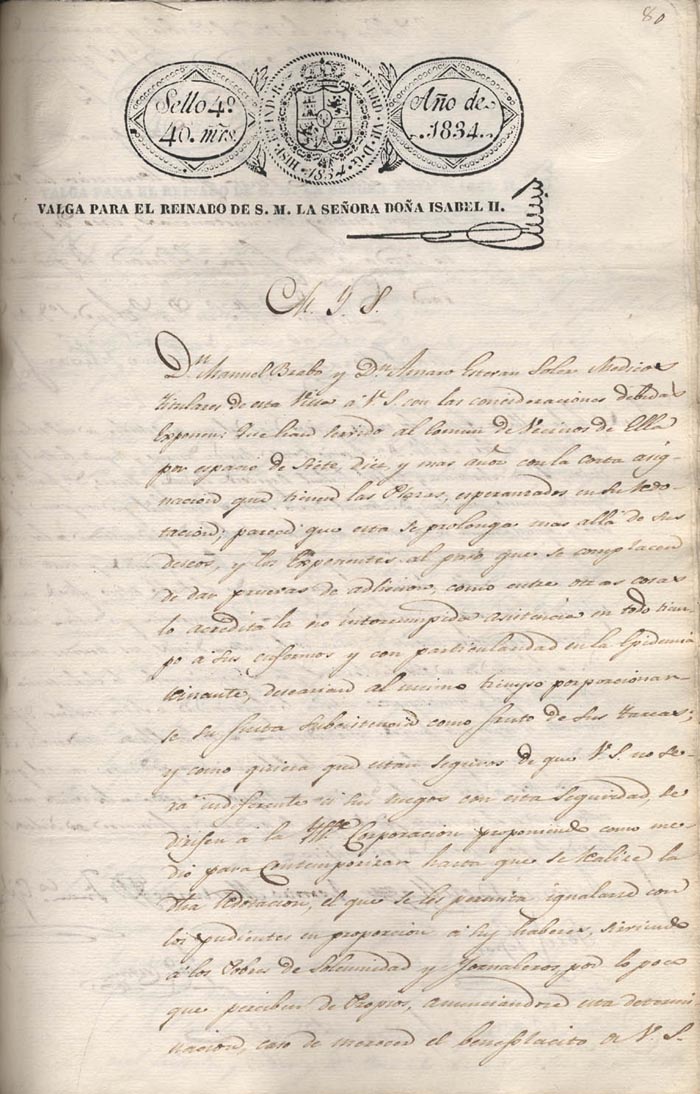 80
Sello 4º
40. mrs.
HISP. ET IND. R.
FERD. VII. D. G.
1834
Año de
1834.
VALGA PARA EL REINADO DE S. M. LA SEÑORA DOÑA ISABEL II.
M. Y. S.
Dn. Manuel Brabo y Dn. Amaro Estevan Soler Medicos
Titulares de esta Villa a V. S. con las consideraciones debidas
Exponen: Que han servido al Comun de Vecinos de Ella
por espacio de Siete, diez, y mas años con la corta asig-
nacion que tienen las Plazas, esperanzados en su Redo-
tacion; pareced que esta se prolonga mas allá de sus
deseos, y los Exponentes al paso que se complacen
de dar pruebas de adhesion, como entre otras cosas
lo acredita la no interrumpida asistencia en todo tiem-
po á sus enfermos y con particularidad en la Epidemia
reinante, desearian al mismo tiempo porporcionar-
se su justa subsistencia como fruto de sus tareas;
y como quiera que estan seguros de que V. S. no se-
rá indiferente á sus ruegos con esta seguridad, se
dirijen a la Ilte. Corporacion proponiendo como me-
dio para Contemporizar hasta que se realice la
Redotacion, el que se les permita igualarse con
los pudientes en proporcion á sus haberes, sirviendo
á los Pobres de Solemnidad y Jornaleros por lo poco
que perciben de Propios, anunciandose esta determi-
nacion, caso de merecer el beneplacito de V. S.